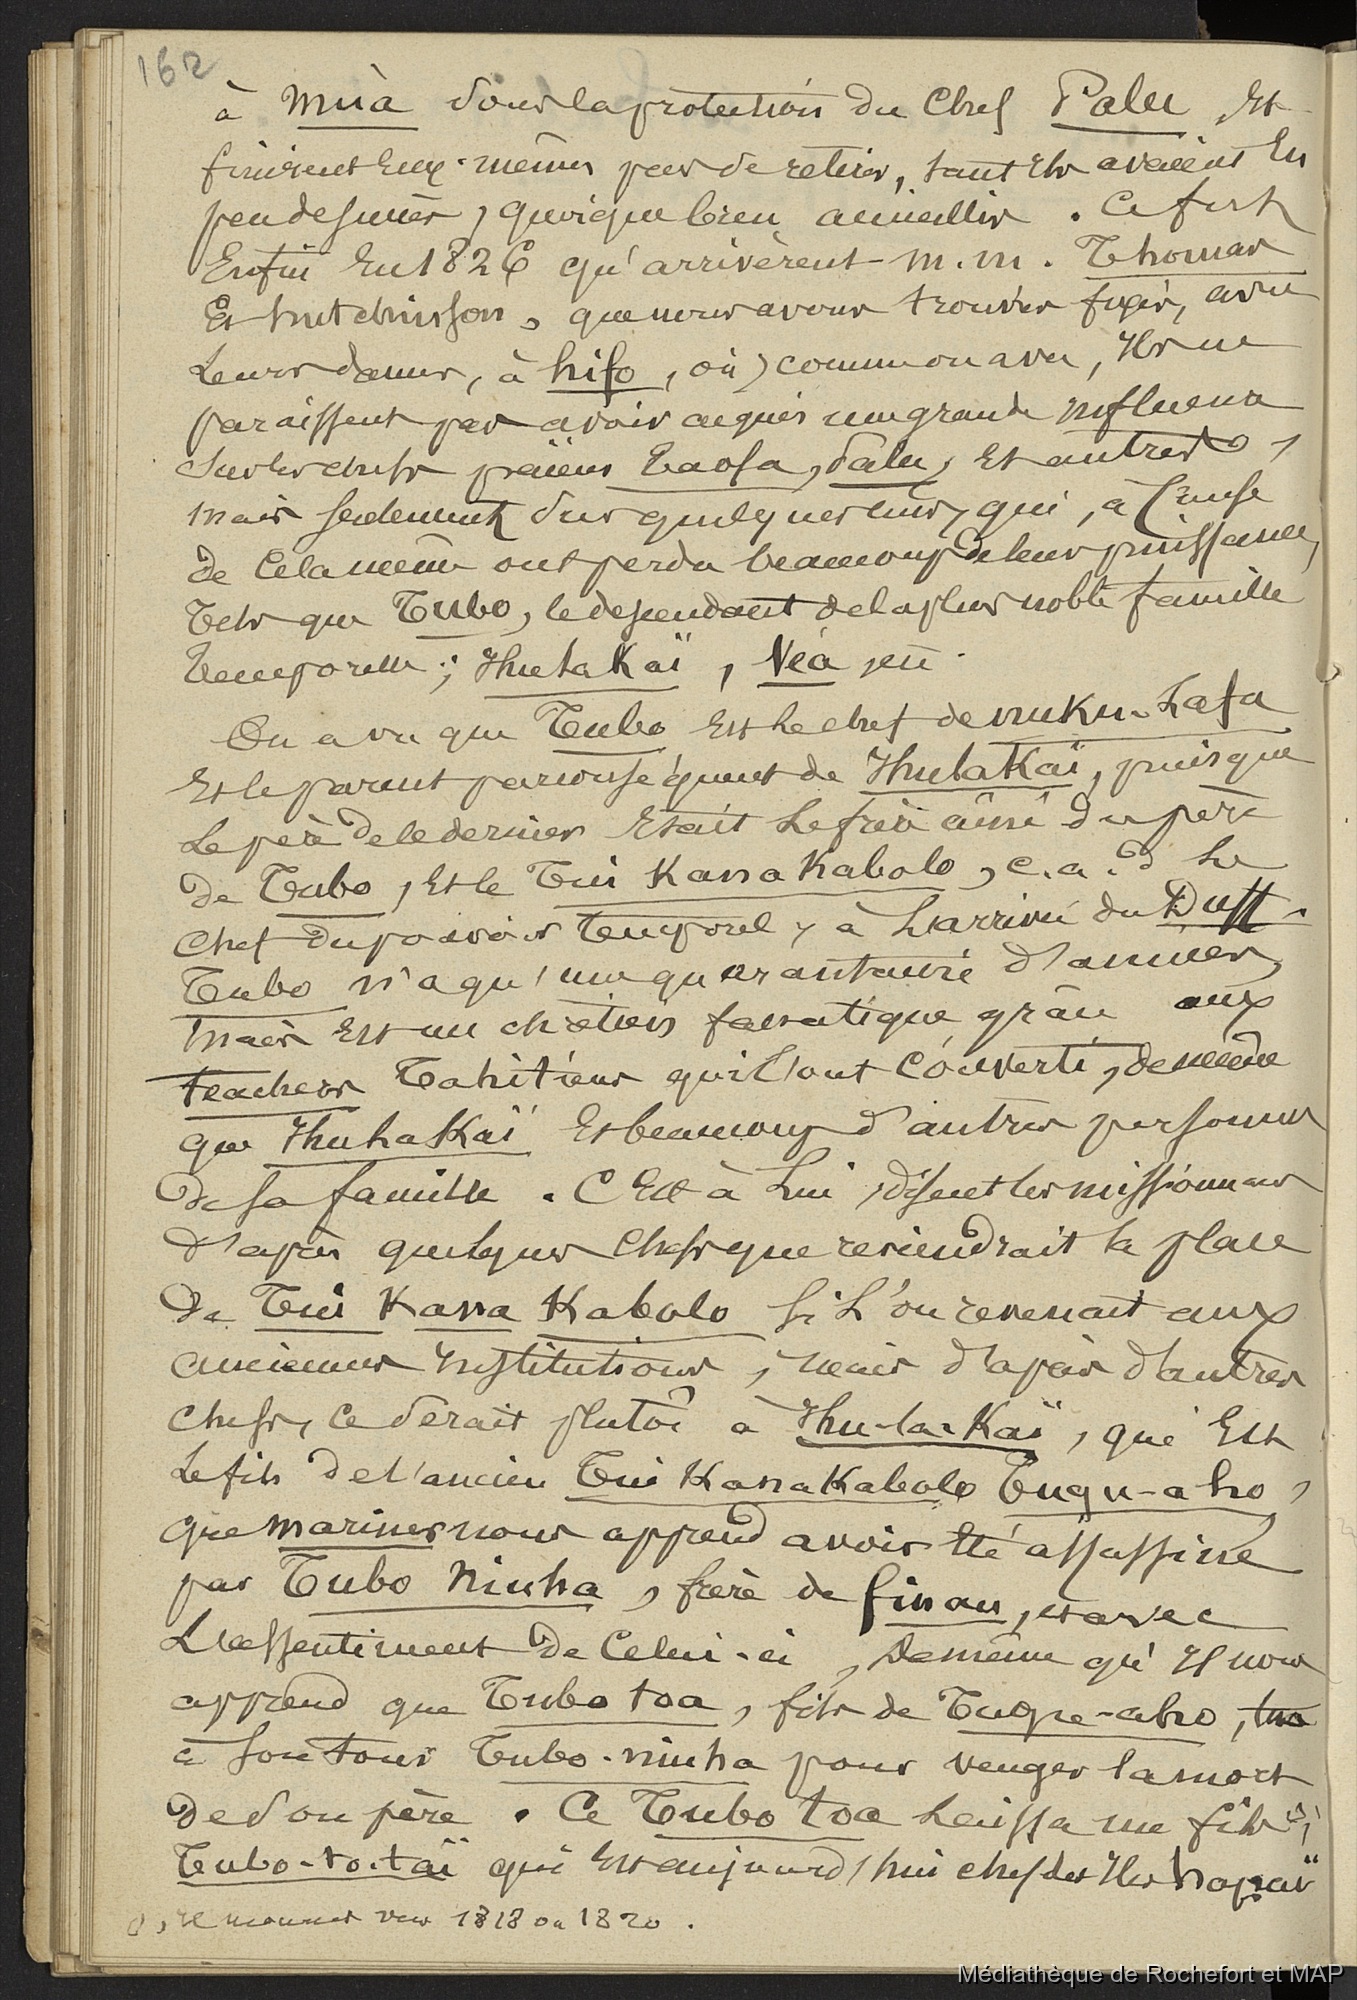 162
à Mùa sous la protection du Chef Palu, et
finirent eux-mêmes par se retirer, tant ils avaient eu
peu de succès, quoique bien accueillis. Ce fut
enfin en 1826 qu'arrivèrent M.M. Thomas
et hutchinson, que nous avons trouvés fixés, avec
leurs dames, à hifo, où, comme on a vu, ils ne
paraissent pas avoir acquis une grande influence
sur les chefs païens Taofa, Palu, et autres,
mais seulement sur quelques uns, qui, à cause
de cela même ont perdu beaucoup de leur puissance,
tels que Tubo, le descendant de la plus noble famille
temporelle; Ihulakaï, Véa, etc.
On a vu que Tubo est le chef de nuku-lafa
et le parent par conséquent de Ihulakaï, puisque
le père de ce dernier était le frère aîné du père
de Tubo, et le Tui Kanakabolo, c.a.d le
chef du pouvoir temporel, à l'arrivée du Duff.
Tubo n'a qu'une quarantaine d'années,
mais est un chrétien fanatique grâce aux
teachers Tahitiens qui l'ont converti, de même
que Ihulakaï et beaucoup d'autres personnes
de sa famille. C'est à lui, disent les missionnaires
d'après quelques chefs que reviendrait la place
de Tui Kana Kabolo si l'on revenait aux
anciennes institutions, mais d'après d'autres
chefs, ce serait plutôt à Ihu-la-Kaï, qui est
le fils de l'ancien Tui Kanakabolo Tugu-aho,
que Mariner nous apprend avoir été assassiné
par Tubo Niuha, frère de finau, et avec
l'assentiment de celui-ci, de même qu'il nous
apprend que Tubo toa, fils de Tugu-aho, tua
à son tour Tubo-niuha pour venger la mort
de son père. Ce Tubo toa laissa un fils
Tubo-to-taï qui est aujourd'hui chef des Iles hapaï
il mourut vers 1818 ou 1820.
Médiathèque de Rochefort et MAP